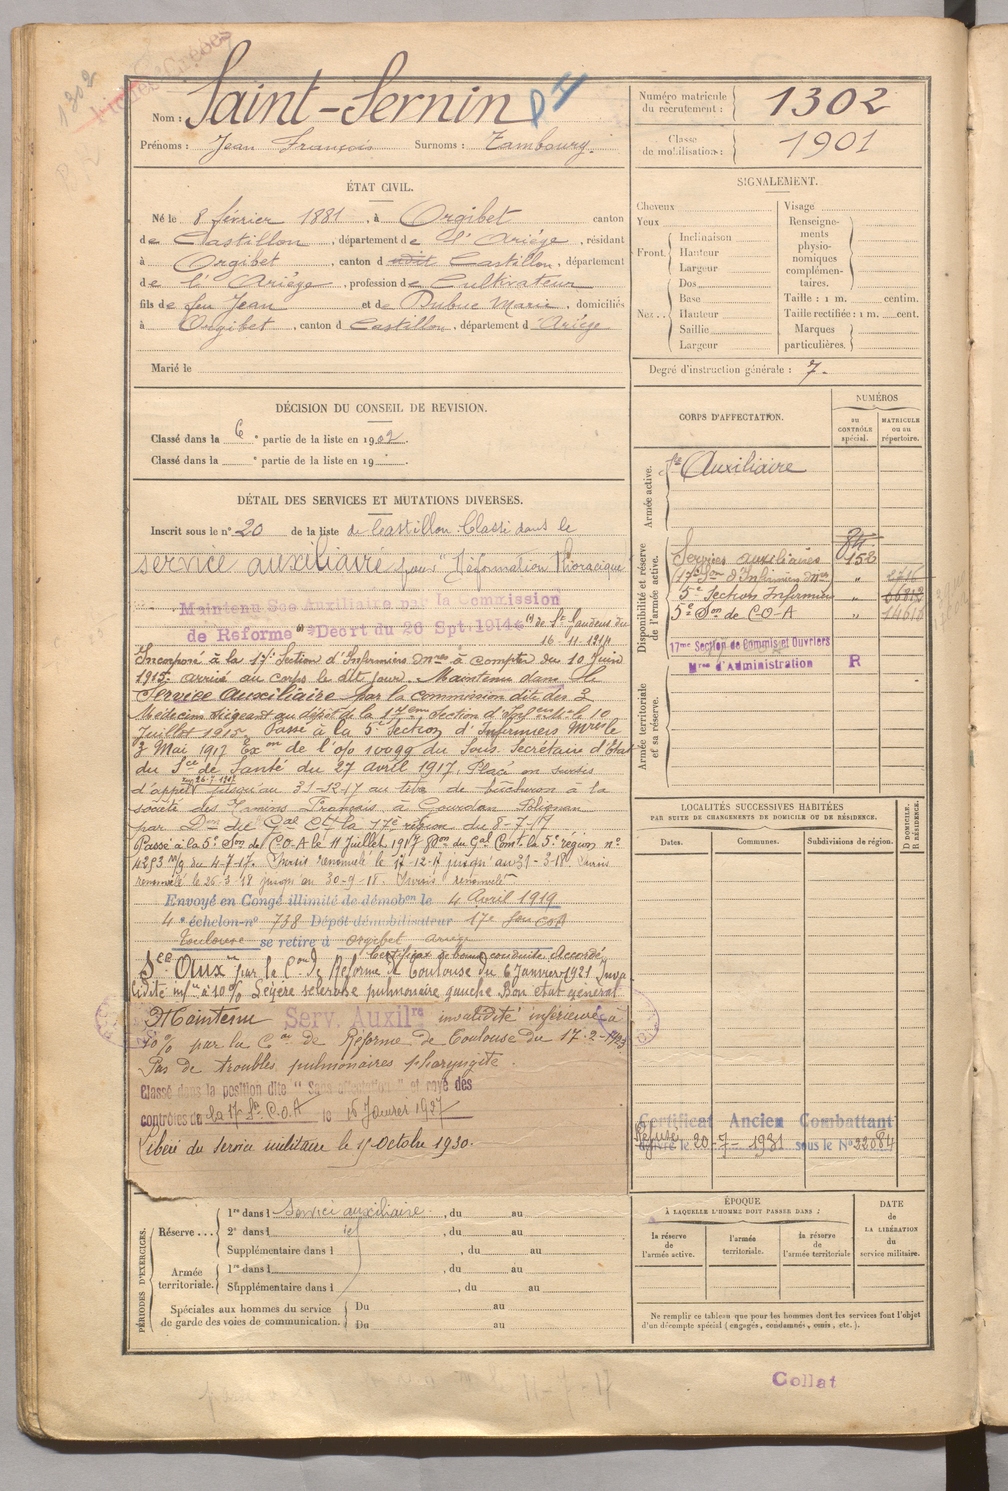 1302
Nom : Saint-Sernin
Prénoms : Jean François Surnoms : Tambourg.
Numéro matricule du recrutement : 1302
Classe de mobilisation : 1901
ÉTAT CIVIL.
Né le 8 février 1881, à Orgibet canton
de Castillon, département de l'Ariége, résidant
à Orgibet, canton d Castillon, département
de l'Ariége, profession de Cultivateur
fils de feu Jean et de Dubuc Marie, domiciliés
à Orgibet, canton d Castillon, département d'Ariége
Marié le
SIGNALEMENT.
Cheveux
Yeux
Front. Inclinaison
Hauteur
Largeur
Nez.. Dos
Base
Hauteur
Saillie
Largeur
Visage
Renseignements physionomiques complémentaires.
Taille : 1 m. centim.
Taille rectifiée : 1 m. cent.
Marques particulières.
Degré d'instruction générale : 7.
DÉCISION DU CONSEIL DE REVISION.
Classé dans la 6e partie de la liste en 1902.
Classé dans la e partie de la liste en 19 .
CORPS D'AFFECTATION.
NUMÉROS
AU CONTRÔLE spécial.
MATRICULE ou au répertoire.
Armée active.
Auxiliaire
Disponibilité et réserve de l'armée active.
Services auxiliaires 158
17e Son d'Infirmiers Mres "
5e Section Infirmiers "
5e Son de C-O-A "
17me Section de Commis et Ouvriers
Mres d'Administration R
Armée territoriale et sa réserve.
DÉTAIL DES SERVICES ET MUTATIONS DIVERSES.
Inscrit sous le n° 20 de la liste de Castillon. Classé dans le
service auxiliaire pour "Déformation Thoracique
Maintenu Sce Auxiliaire par la Commission
de Réforme Décrt du 26 Spt. 1914 de St Gaudens du
16-11-1914
Incorporé à la 17e Section d'Infirmiers Mres à compter du 10 Juin
1915. arrivé au corps le dit jour. Maintenu dans le
Service Auxiliaire par la commission dite des 3
Médecins siégeant au dépôt de la 17ème Section d'Infers Mes le 10
Juillet 1915. Passé à la 5e Section d'Infirmiers Mres le
3 Mai 1917 Exon de l'o/o 10099 du Sous. Secrétaire d'Etat
du Sce de Santé du 27 avril 1917. Placé en sursis
d'appel jusqu'au 31-12-17 au titre de bûcheron à la
société des Français à Gourdan Polignan
par Don du Gal Ct la 17e région du 8-7-17
Passé à la 5e Son de C.O.A le 11 Juillet 1917 du Gal Comt la 5e région n°
4293 du 4-7-17. Sursis renouvelé le 17-12-17 jusqu'au 31-3-18. Sursis
renouvelé le 26-3-18 jusqu'au 30-9-18. Sursis renouvelé
Envoyé en Congé illimité de démobon le 4 Avril 1919
4e échelon-n° 738 Dépôt démobilisateur 17e Son COA
Toulouse se retire à Orgibet Ariège
Certificat de bonne conduite Accordé
Sce Auxre par la Con de Réforme de Toulouse du 6 Janvier 1921 Inva
lidité infre à 10% Légère sclérose pulmonaire gauche Bon état général
Maintenu Serv. Auxilre invalidité inférieure à
10% par la Con de Réforme de Toulouse du 17-2-1923
Pas de troubles pulmonaires pharyngite.
Classé dans la position dite "Sans affectation" et rayé des
contrôles de la 17e Son C.O.A le 15 Janvier 1927
Libéré du service militaire le 15 Octobre 1930.
LOCALITÉS SUCCESSIVES HABITÉES
PAR SUITE DE CHANGEMENTS DE DOMICILE OU DE RÉSIDENCE.
Dates.
Communes.
Subdivisions de région.
D DOMICILE.
R RÉSIDENCE.
Certificat Ancien Combattant
Refusé le 20-7-1931 sous le N° 22084
PÉRIODES D'EXERCICES.
Réserve... 1re dans l Service auxiliaire, du au
2e dans l , du au
Supplémentaire dans l , du au
Armée territoriale. 1re dans l , du au
Supplémentaire dans l , du au
Spéciales aux hommes du service de garde des voies de communication. Du au
Du au
ÉPOQUE
À LAQUELLE L'HOMME DOIT PASSER DANS :
la réserve de l'armée active.
l'armée territoriale.
la réserve de l'armée territoriale
DATE de LA LIBÉRATION du service militaire.
Ne remplir ce tableau que pour les hommes dont les services font l'objet
d'un décompte spécial (engagés, condamnés, omis, etc.).
Collat